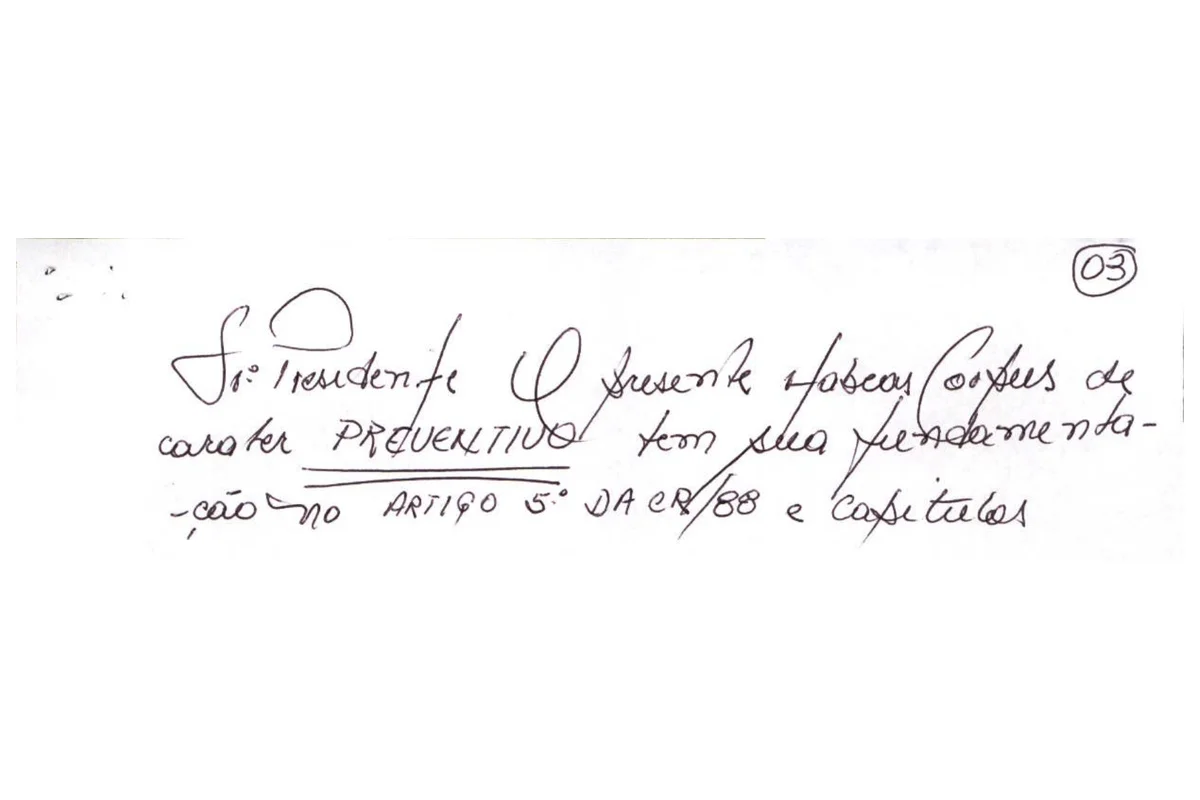 03
Sr.º Presidente O presente Habeas Corpus de
carater PREVENTIVO tem sua fundamenta-
-ção no ARTIGO 5.º DA CR/88 e capitulos